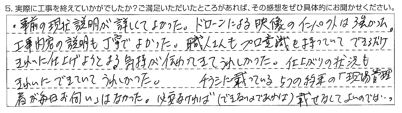 5. 実際に工事を終えていかがでしたか?ご満足いただいたところがあれば、その感想をぜひ具体的にお聞かせください。
・事前の現状説明が詳しくてよかった。ドローンによる映像のインパクトは強かった。
工事内容の説明も丁寧でよかった。職人さんもプロ意識を持っていてできるだけ
きれいに仕上げようとする気持が伝わってきてうれしかった。仕上がりの状況も
きれいにできていてうれしかった。 チラシに載っている5つの約束の「現場管理
者が毎日お伺い」はなかった。必要なければ(できないのであれば)載せなくてよいのでは…。